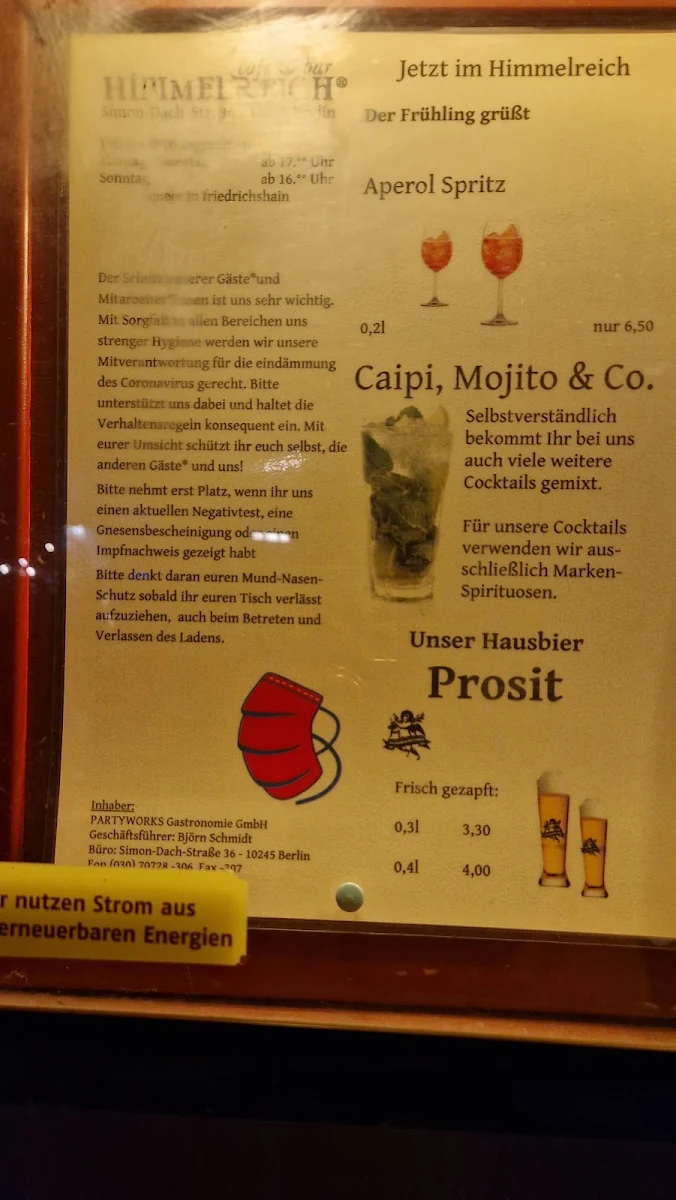 café & bar
HIMMELREICH®
Simon-Dach-Str.
ab 17.⁰⁰ Uhr
Sonntag, ab 16.⁰⁰ Uhr
in friedrichshain
Der Schutz unserer Gäste*und
Mitarbeiter*innen ist uns sehr wichtig.
Mit Sorgfalt in allen Bereichen uns
strenger Hygiene werden wir unsere
Mitverantwortung für die eindämmung
des Coronavirus gerecht. Bitte
unterstützt uns dabei und haltet die
Verhaltensregeln konsequent ein. Mit
eurer Umsicht schützt ihr euch selbst, die
anderen Gäste* und uns!
Bitte nehmt erst Platz, wenn ihr uns
einen aktuellen Negativtest, eine
Gnesensbescheinigung oder einen
Impfnachweis gezeigt habt
Bitte denkt daran euren Mund-Nasen-
Schutz sobald ihr euren Tisch verlässt
aufzuziehen, auch beim Betreten und
Verlassen des Ladens.
Inhaber:
PARTYWORKS Gastronomie GmbH
Geschäftsführer: Björn Schmidt
Büro: Simon-Dach-Straße 36 - 10245 Berlin
Fon (030) 70728 -306, Fax -307
r nutzen Strom aus
erneuerbaren Energien
Jetzt im Himmelreich
Der Frühling grüßt
Aperol Spritz
0,2l nur 6,50
Caipi, Mojito & Co.
Selbstverständlich
bekommt Ihr bei uns
auch viele weitere
Cocktails gemixt.
Für unsere Cocktails
verwenden wir aus-
schließlich Marken-
Spirituosen.
Unser Hausbier
Prosit
Frisch gezapft:
0,3l 3,30
0,4l 4,00